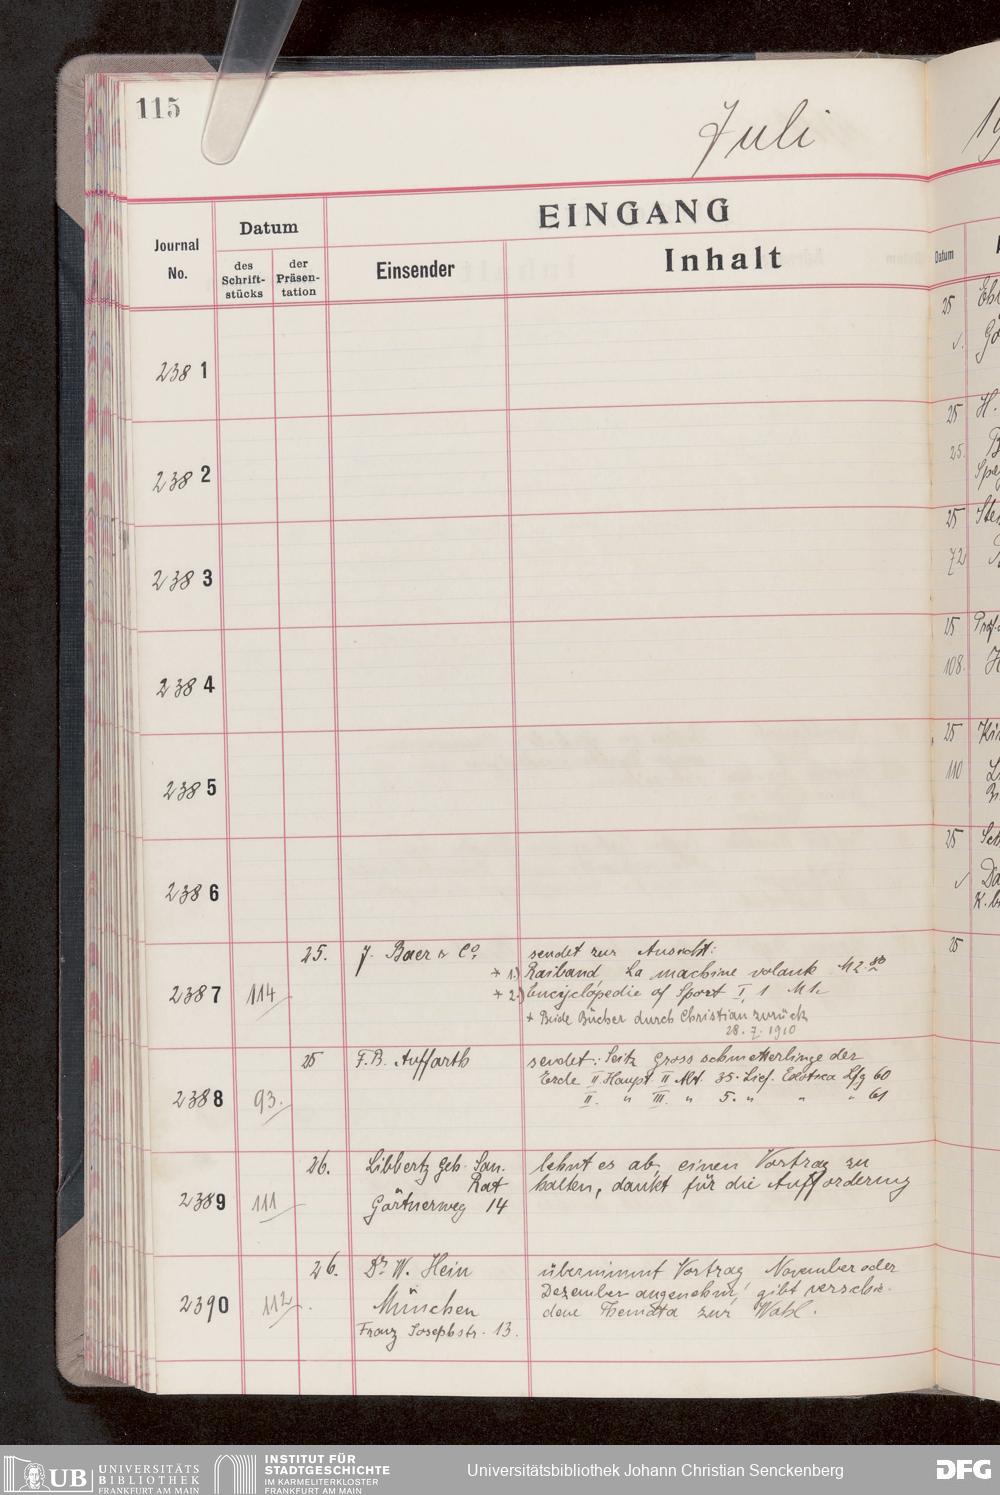 115
Juli
19
EINGANG
Journal No.
Datum
des Schrift-stücks
der Präsen-tation
Einsender
Inhalt
Datum
2381
2382
2383
2384
2385
2386
2387 114 25. J. Baer & Co. sendet zur Ansicht:
+ 1.) Raiband La machine volante M 2.50
+ 2.) Encyclopedie of Sport I, 1 Mk
+ Beide Bücher durch Christian zurück
28. 7. 1910
2388 93. 25 F.B. Auffarth sendet: Seitz Gross schmetterlinge der
Erde II. Haupt II Abt. 35. Lief. Exotica Lfg 60
II. " III. " 5. " " " 61
2389 111 26. Libbertz Geh. San. Rat
Gärtnerweg 14
lehnt es ab, einen Vortrag zu
halten, dankt für die Aufforderung
2390 112. 26. Dr. W. Hein
München
Franz Josephstr. 13.
übernimmt Vortrag November oder
Dezember angenehm, gibt verschie-
dene Themata zur Wahl.
25
25
25.
25
72
25
108.
25
110
25
25
UB UNIVERSITÄTS BIBLIOTHEK FRANKFURT AM MAIN
INSTITUT FÜR STADTGESCHICHTE IM KARMELITERKLOSTER FRANKFURT AM MAIN
Universitätsbibliothek Johann Christian Senckenberg
DFG